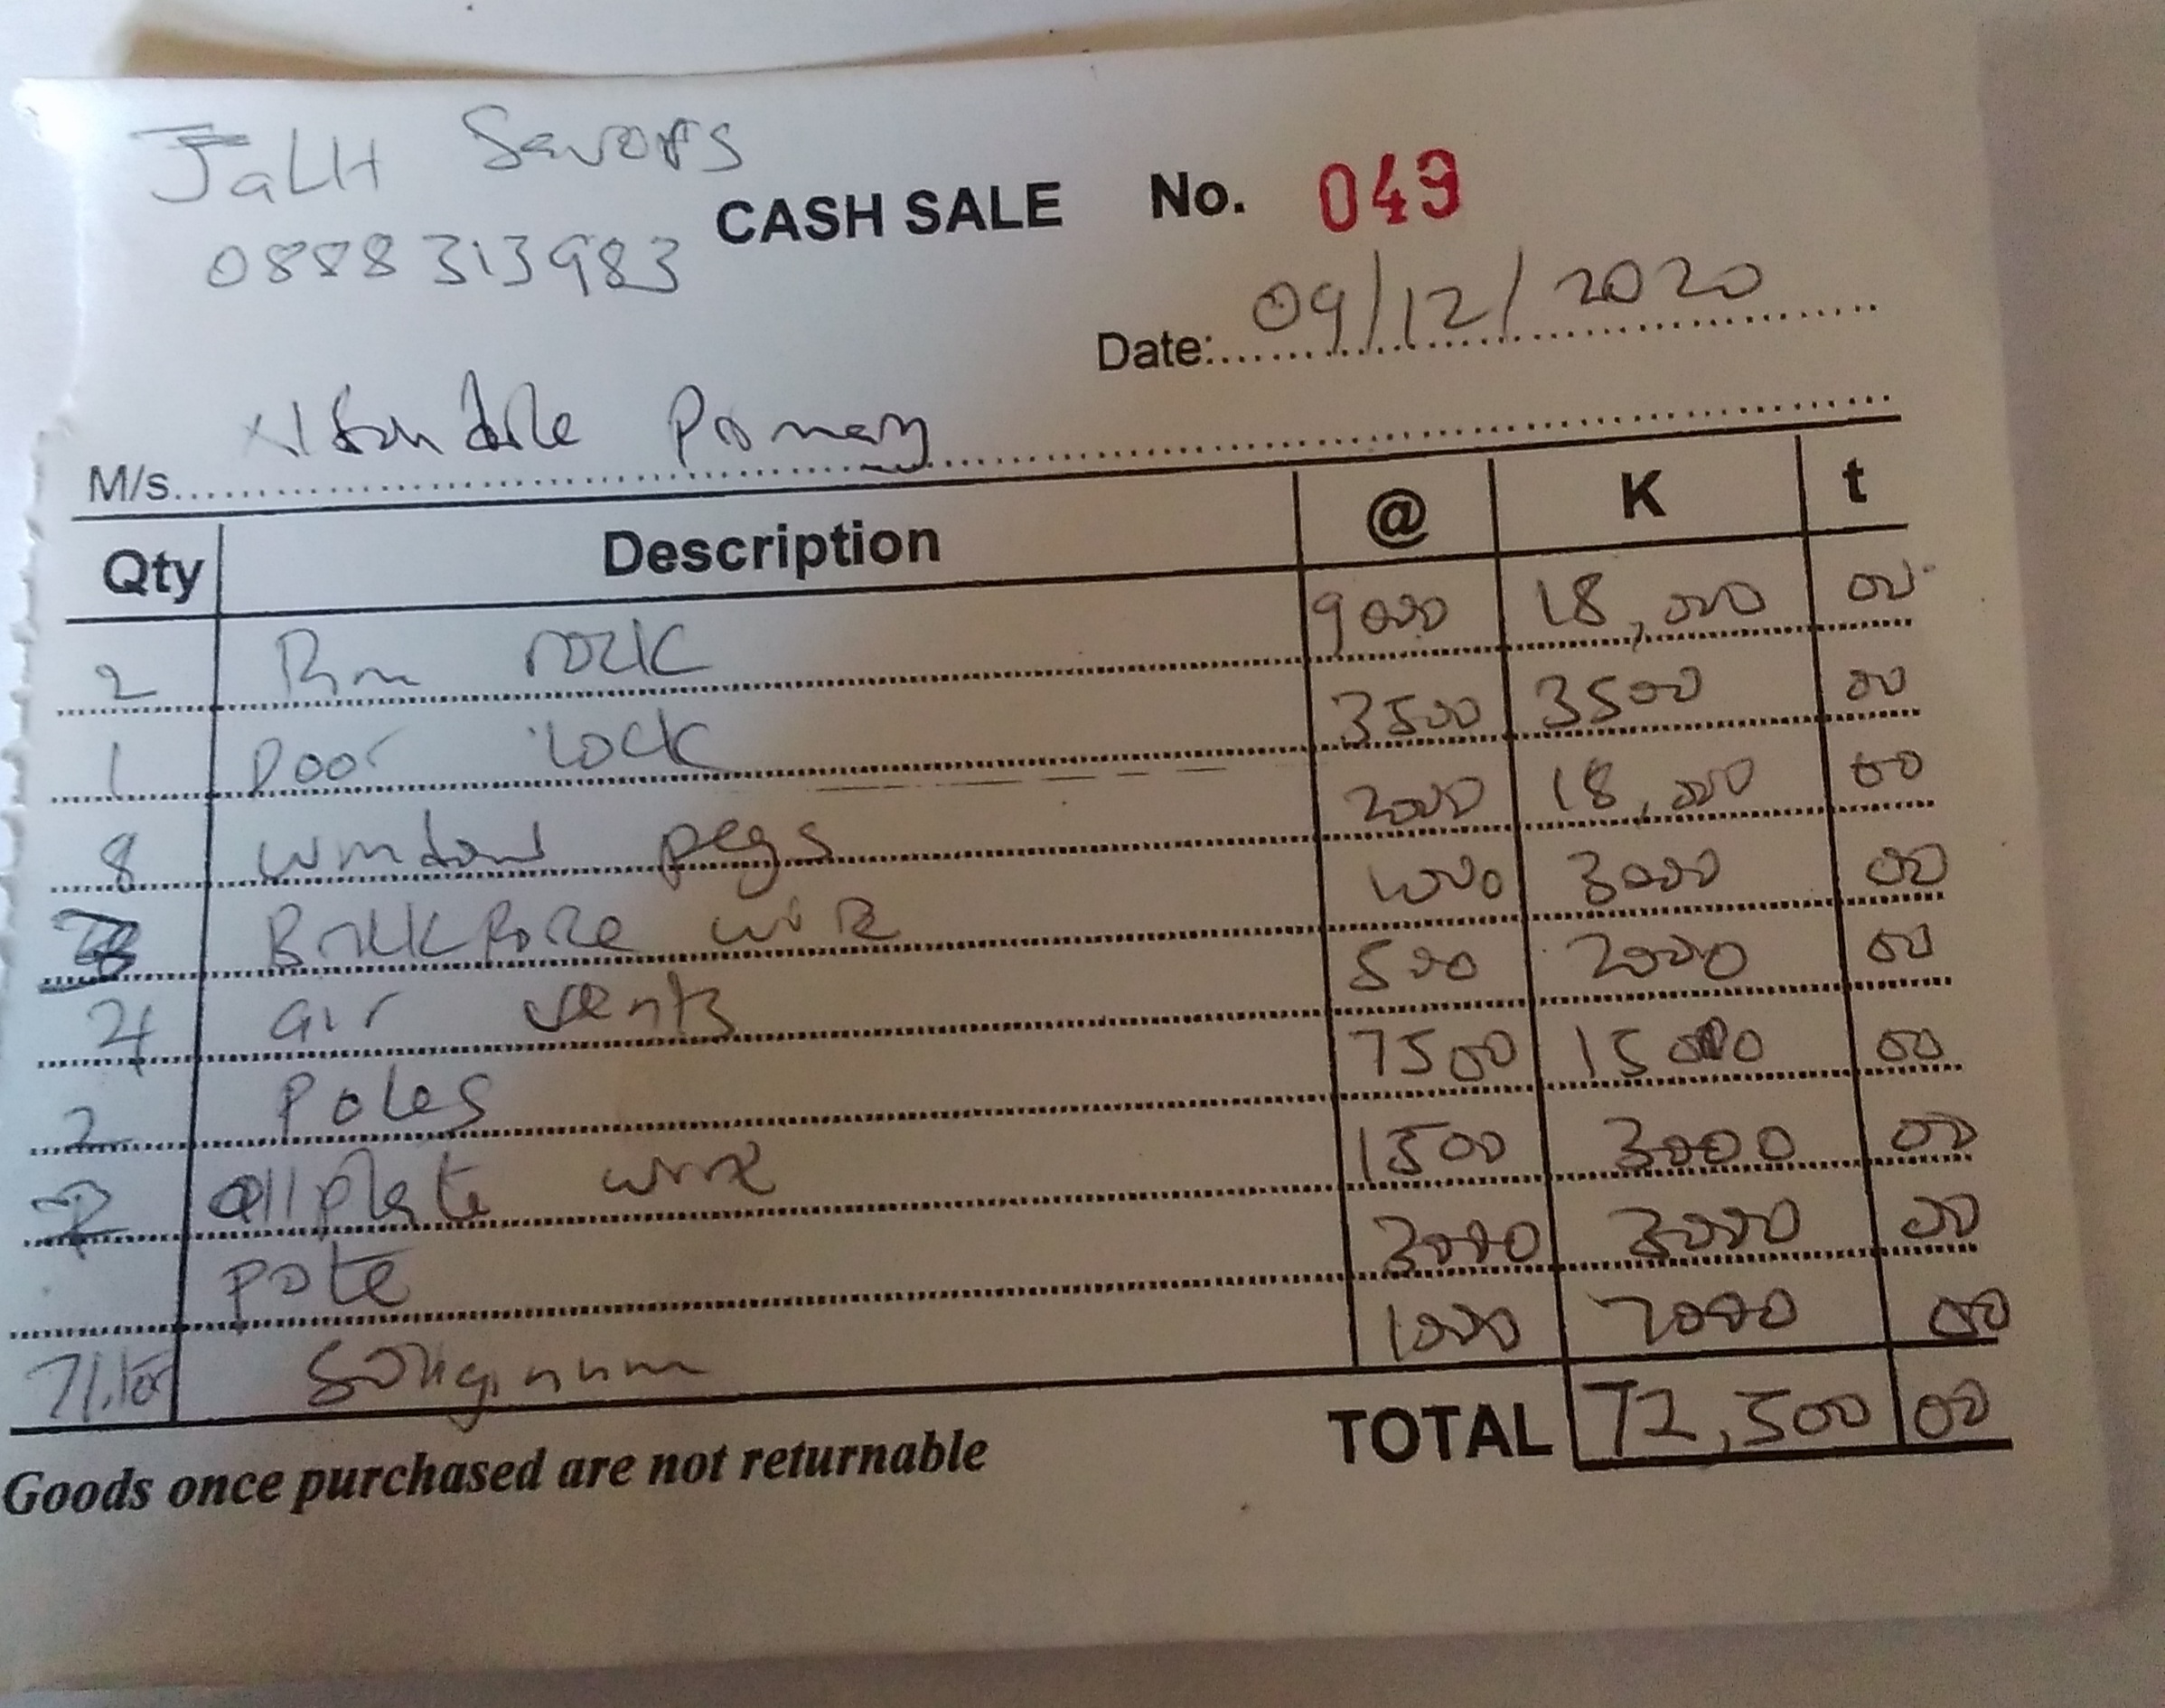 JaLH
CASH SALE No. 049
0888313983
Date: 09/12/2020
M/s. Primary
Qty Description @ K t
2 Rim rock 9000 18,000 00
1 Door lock 3500 3500 00
8 window pegs 2000 18,000 00
Brickforce wire 1000 3000 00
4 air vents 500 2000 00
2 Poles 7500 15000 00
2 allplate wire 1500 3000 00
pote 3000 3000 00
7 liter Soliginum 1000 7000 00
TOTAL 72,500 00
Goods once purchased are not returnable